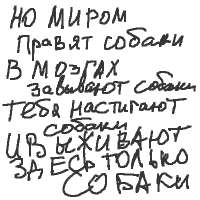 НО МИРОМ
Правят собаки
В МОЗГАХ
Завывают собаки
Тебя настигают
собаки
И ВЫЖИВАЮТ
ЗДЕСЬ ТОЛЬКО
СОБАКИ